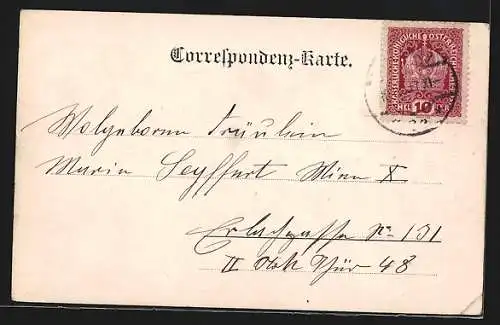 Correspondenz-Karte.
KAISERLICHE KÖNIGLICHE ÖSTERREICHISCHE
HEL 10
Wolgeborne Fräulein
Maria Seyffert Wien X
Erlachgasse No 131
II Stk Thür 48